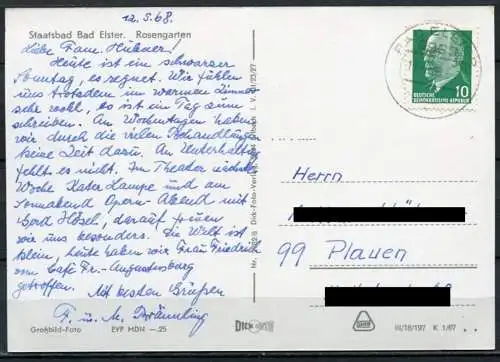 12.5.68.
Staatsbad Bad Elster. Rosengarten
Liebe Fam. Hübner!
Heute ist ein schwarzer
Sonntag, es regnet. Wir fühlen
uns trotzdem im warmen Zimmer
sehr wohl, es ist ein Tag zum
schreiben. An Wochentagen haben
wir durch die vielen Behandlungen
keine Zeit dazu. An Unterhaltung
fehlt es nicht. Im Theater nächste
Woche Kater Lampe und am
Sonnabend Opern-Abend mit
Gerd Hösel, darauf freuen
wir uns besonders. Die Welt ist
klein, heute haben wir Frau Friedrich
vom Café Fr.-Augustusburg
getroffen.
Mit besten Grüßen
F. u. M.
Großbild-Foto EVP MDN —.25
DEUTSCHE
DEMOKRATISCHE REPUBLIK
10
Herrn
99 Plauen
III/18/197 K 1/67